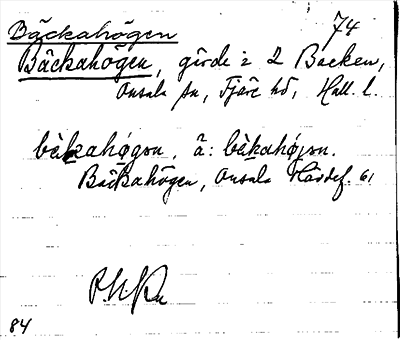 Bäckahögen 74
Bäckahögen, gärde i 2 Backen,
Onsala sn, Fjäre hd, Hall. l.
bäkahøgən. ä: bäkahøjən.
Backahögen, Onsala Härdef. 61
84